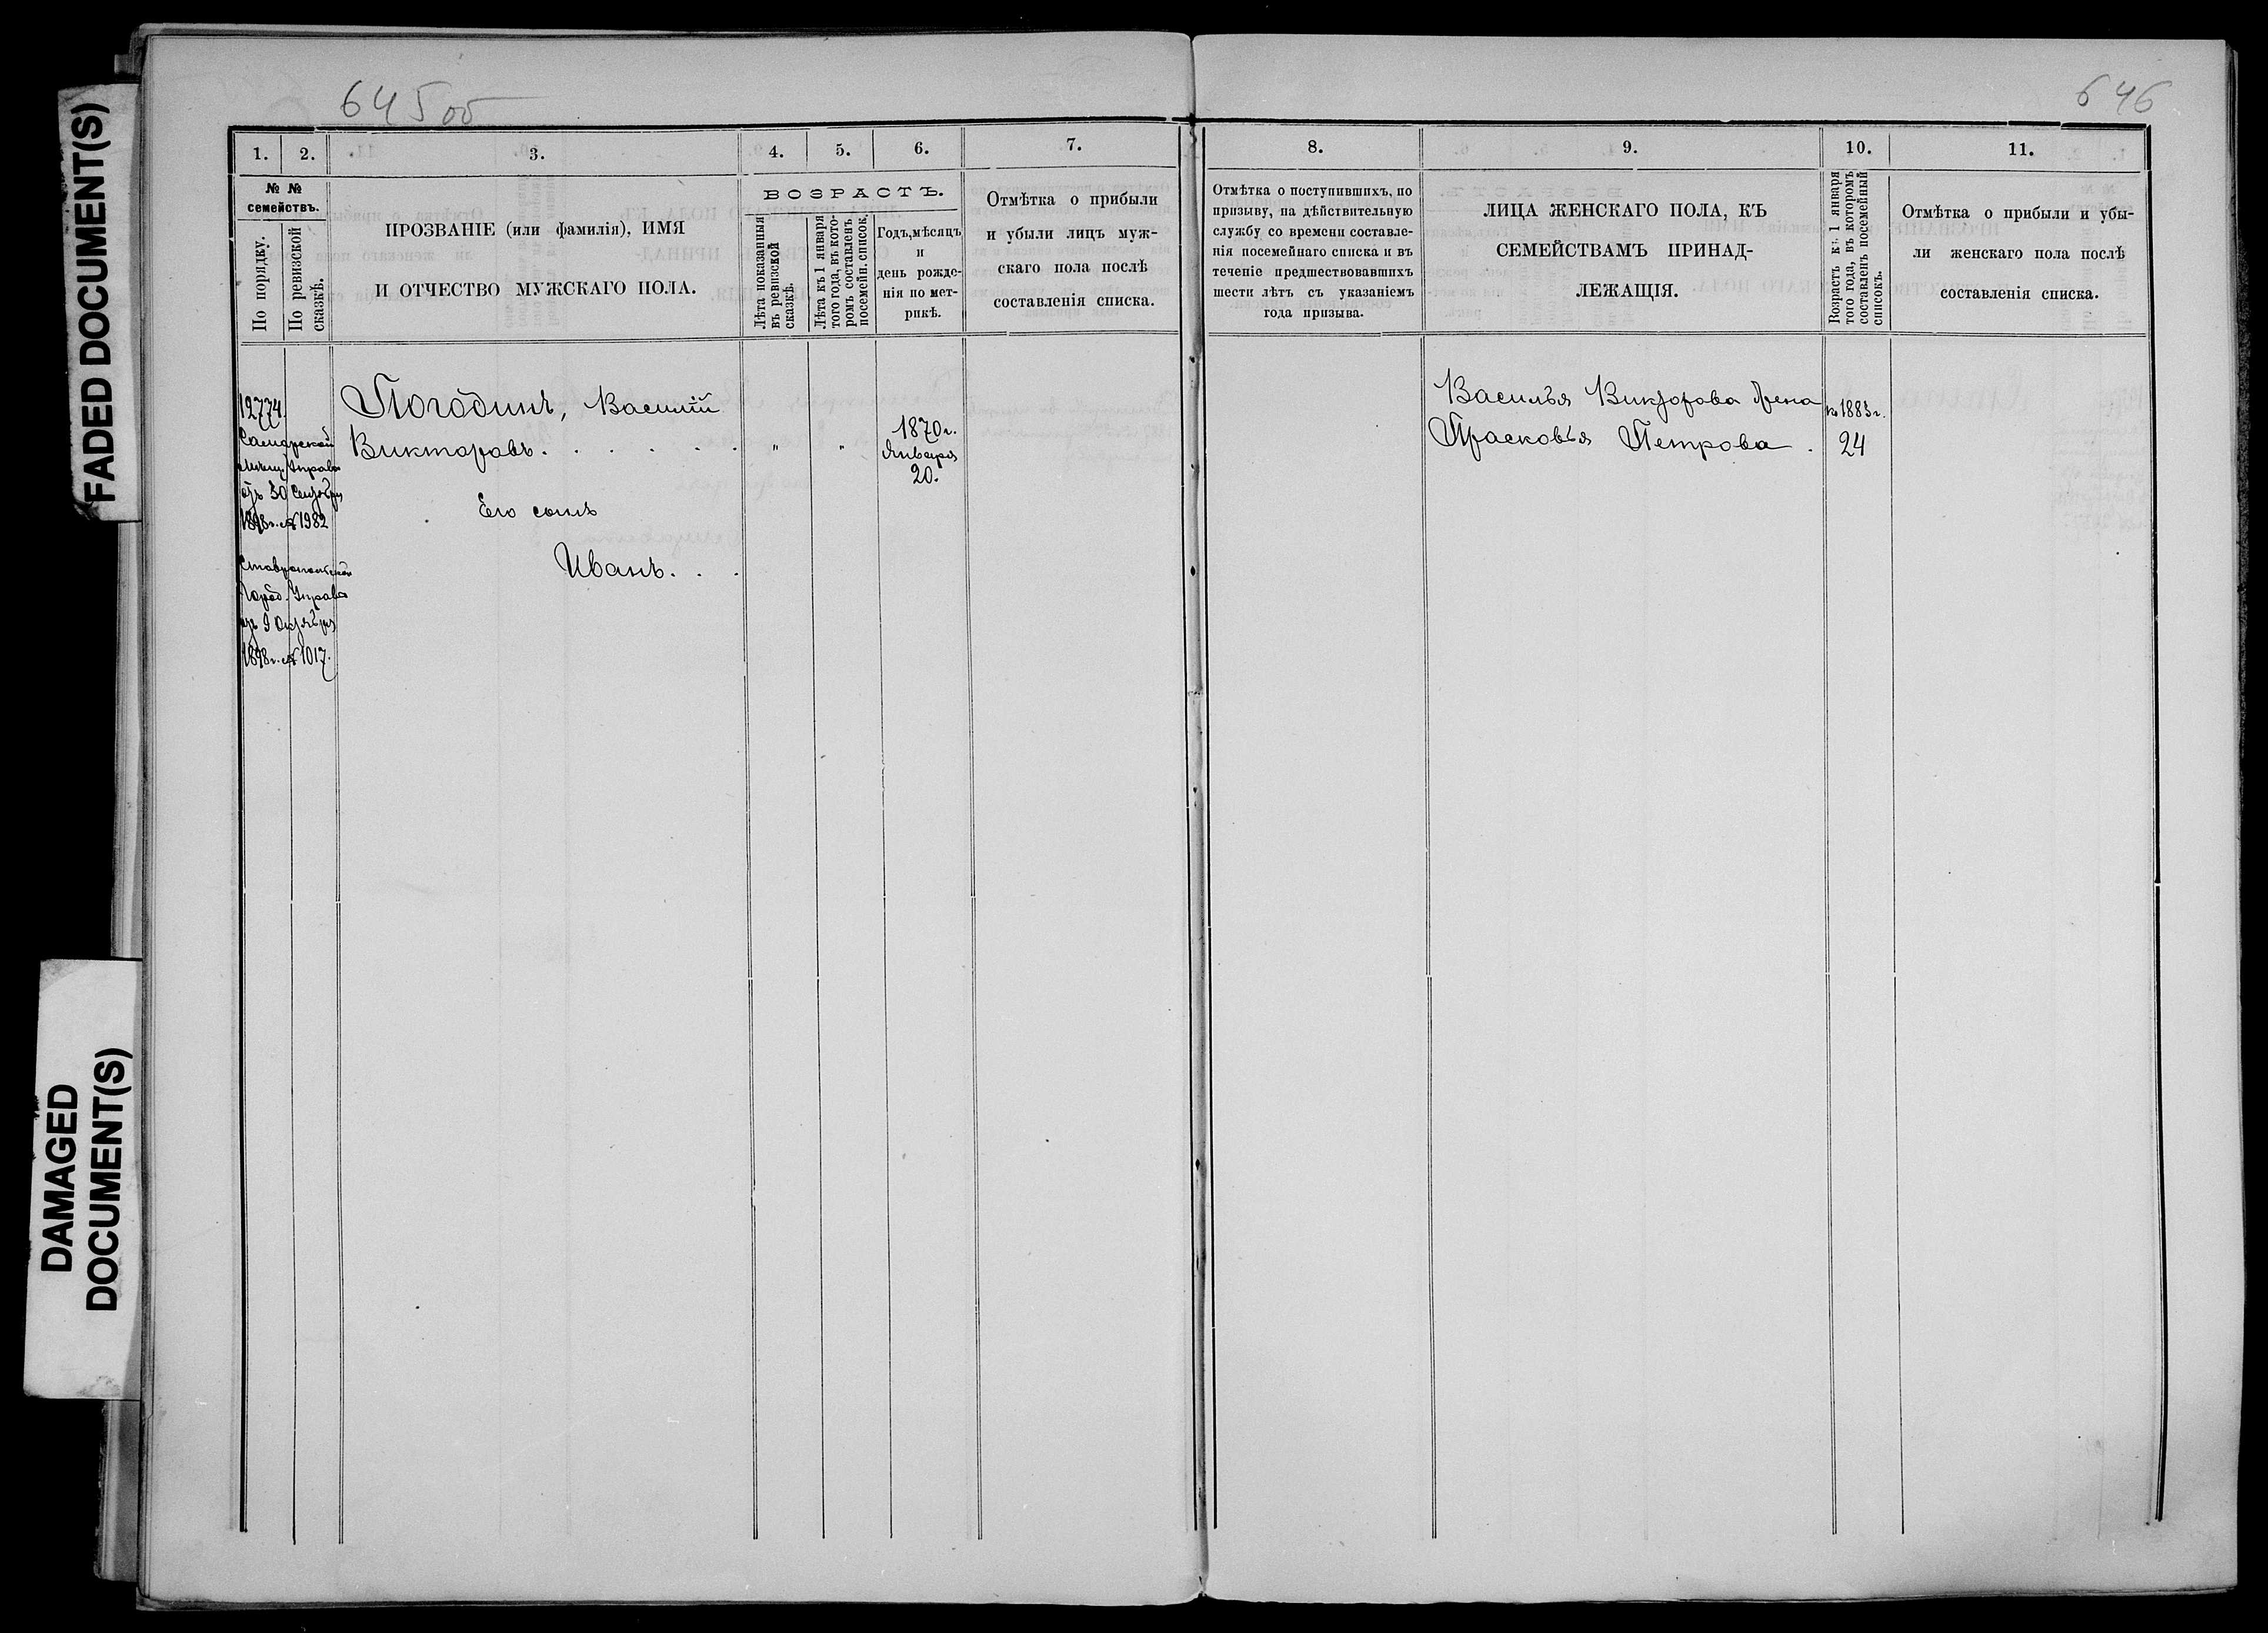 FADED DOCUMENT(S)
DAMAGED
DOCUMENT(S)
645 об
646
1.
2.
3.
4.
5.
6.
7.
8.
9.
10.
11.
№ №
семействъ.
По порядку.
По ревизской
сказкѣ.
ПРОЗВАНІЕ (или фамилія), ИМЯ
И ОТЧЕСТВО МУЖСКАГО ПОЛА.
ВОЗРАСТЪ.
Лѣта показанныя
въ ревизской
сказкѣ.
Лѣта къ 1 января
того года, въ кото-
ромъ составленъ
посемейн. список.
Годъ, мѣсяцъ
и
день рожде-
нія по мет-
рикѣ.
Отмѣтка о прибыли
и убыли лицъ муж-
скаго пола послѣ
составленія списка.
Отмѣтка о поступившихъ, по
призыву, на дѣйствительную
службу со времени составле-
нія посемейнаго списка и въ
теченіе предшествовавшихъ
шести лѣтъ съ указаніемъ
года призыва.
ЛИЦА ЖЕНСКАГО ПОЛА, КЪ
СЕМЕЙСТВАМЪ ПРИНАД-
ЛЕЖАЩІЯ.
Возрастъ къ 1 января
того года, въ которомъ
составленъ посемейный
списокъ.
Отмѣтка о прибыли и убы-
ли женскаго пола послѣ
составленія списка.
12774.
Самарской
Мѣщ. Управы
отъ 30 Сентября
1898 г. № 1982
Ставропольской
Город. Управы
отъ 9 Октября
1898 г. № 1017.
Погодинъ, Василій
Викторовъ . . . . . .
" "
1870 г.
Января
20.
Его сынъ
Иванъ . . .
Василья Викторова жена
Прасковья Петрова .
къ 1883 г.
24